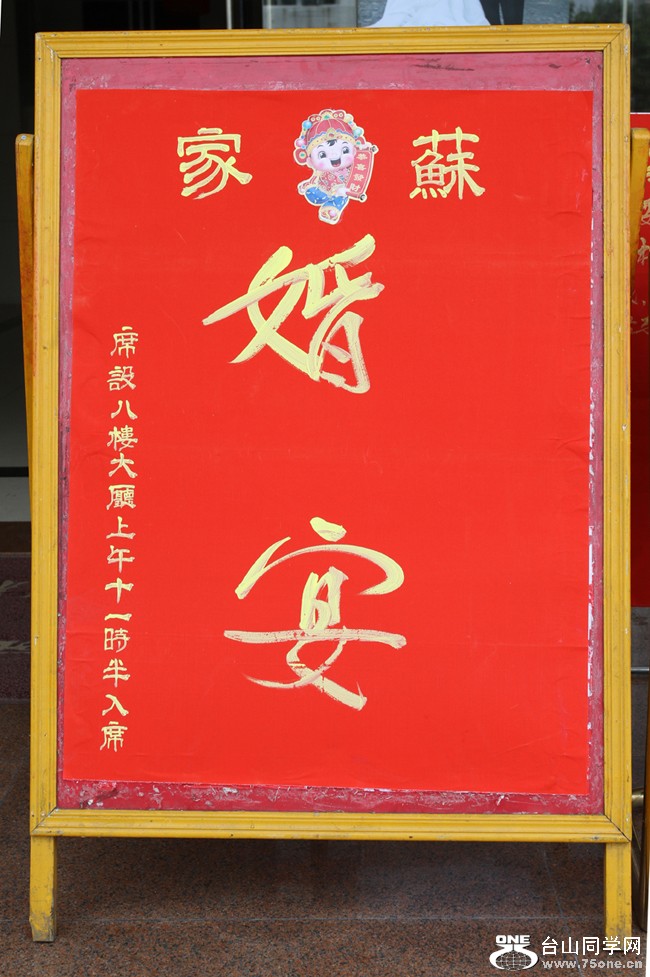 蘇家
恭喜發財
婚宴
席設八樓大廳上午十一時半入席
ONE
台山同学网
www.75one.cn